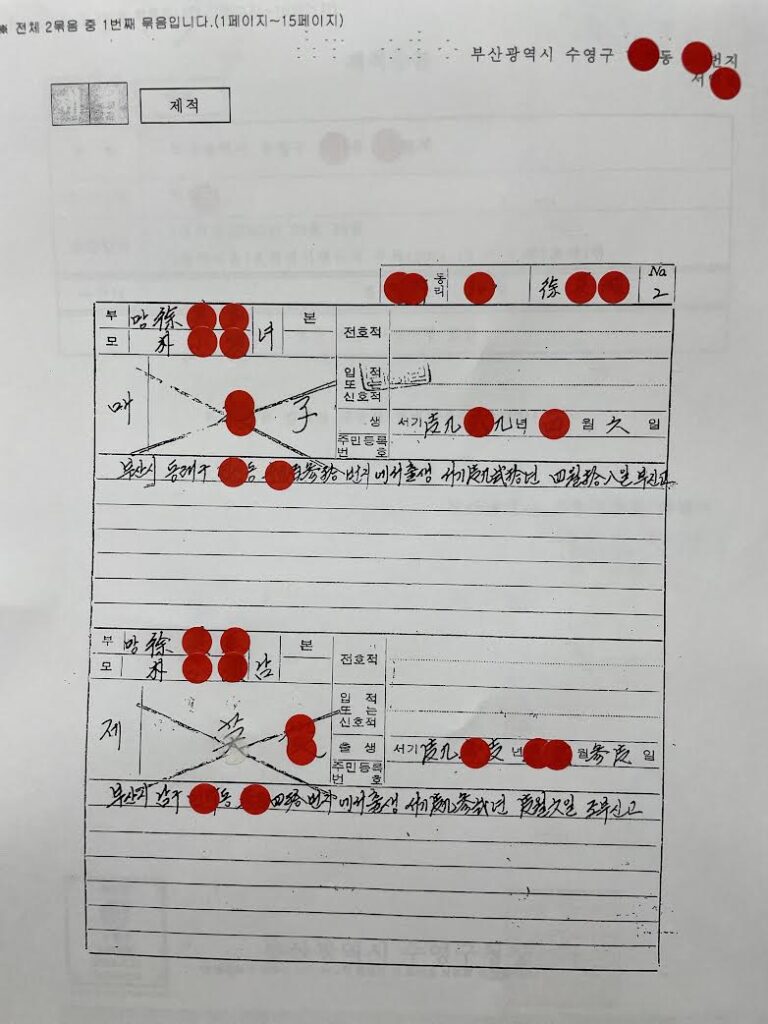 ※ 전체 2묶음 중 1번째 묶음입니다.(1페이지~15페이지)
부산광역시 수영구 동 번지
서
제적
동리 徐 No 2
부 망 徐
모 朴 녀 본
전호적
매 子
입적 또는 신호적
생 서기 壹九 九년 월 六 일
주민등록번호
부산시 동래구 동 百參拾번지에서출생 서기壹九貳拾년 四월拾八일 부신고
부 망 徐
모 朴 남 본
전호적
제 英
입적 또는 신호적
출생 서기 壹九 壹년 월 參壹 일
주민등록번호
부산시 남구 동 四拾번지에서출생 서기壹九參貳년 壹월六일 조부신고